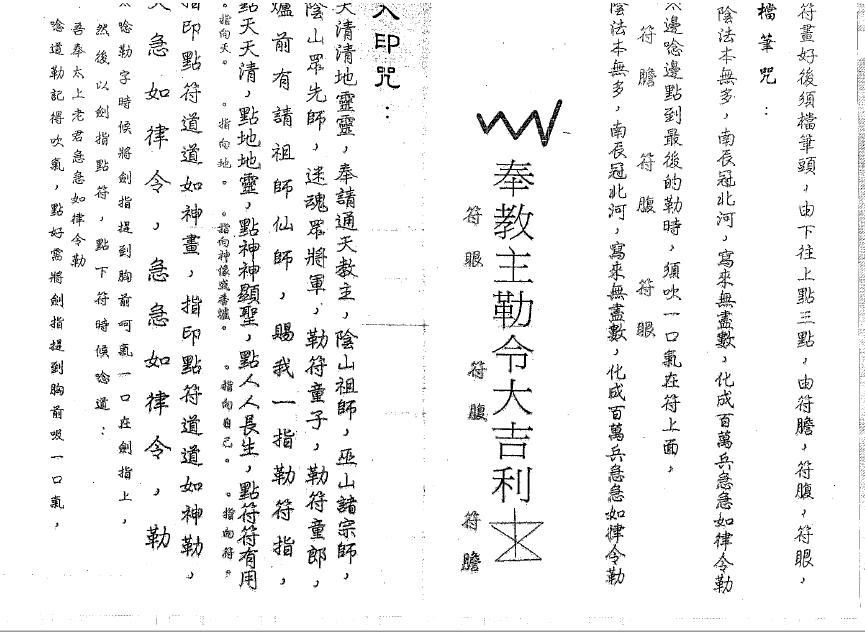 符畫好後須檔筆頭，由下往上點三點，由符膽，符腹，符眼，
檔筆咒：
陰法本無多，南辰冠北河，寫來無盡數，化成百萬兵急急如律令勒
符膽　符腹　符眼
邊唸邊點到最後的勒時，須吹一口氣在符上面，
陰法本無多，南辰冠北河，寫來無盡數，化成百萬兵急急如律令勒
奉教主勒令大吉利
符眼　符腹　符膽
入印咒：
天清清地靈靈，奉請通天教主，陰山祖師，巫山諸宗師，
陰山眾先師，迷魂眾將軍，勒符童子，勒符童郎，
爐前有請祖師仙師，賜我一指勒符指，
點天天清，點地地靈，點神神顯聖，點人人長生，點符符有用
。指向天。　。指向地。　。指向神像或香爐。　。指向自己。　。指向符。
指印點符道道如神畫，指印點符道道如神勒，
急如律令，急急如律令，勒
唸勒字時候將劍指提到胸前呵氣一口在劍指上，
然後以劍指點符，點下符時候唸道：
吾奉太上老君急急如律令勒
唸道勒記得吹氣，點好需將劍指提到胸前吸一口氣，